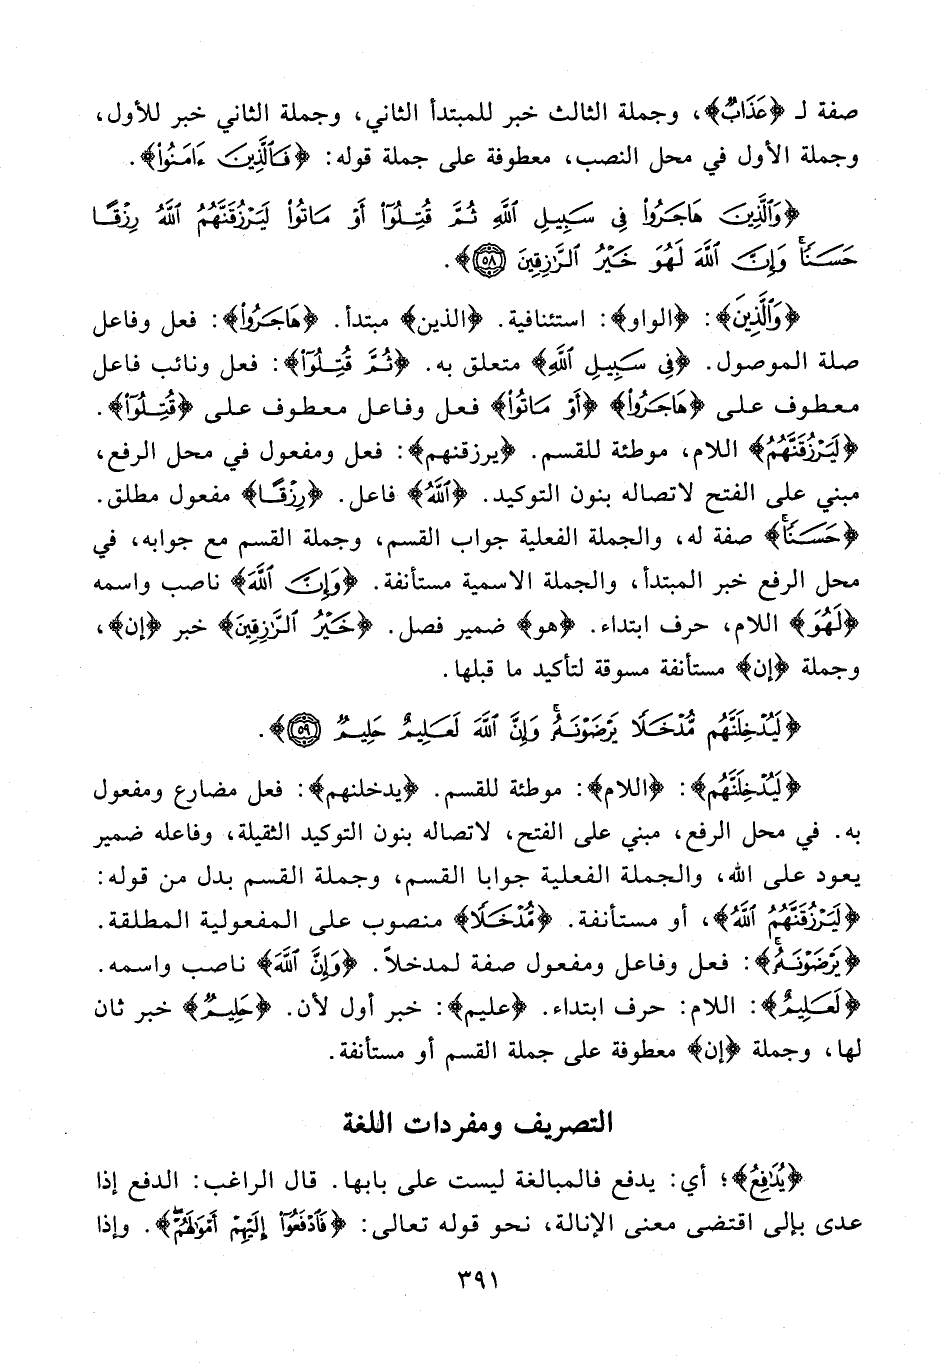 صفة لـ ﴿عَذَابٌ﴾، وجملة الثالث خبر للمبتدأ الثاني، وجملة الثاني خبر للأول،
وجملة الأول في محل النصب، معطوفة على جملة قوله: ﴿فَٱلَّذِينَ ءَامَنُوا۟﴾.
﴿وَٱلَّذِينَ هَاجَرُوا۟ فِى سَبِيلِ ٱللَّهِ ثُمَّ قُتِلُوٓا۟ أَوْ مَاتُوا۟ لَيَرْزُقَنَّهُمُ ٱللَّهُ رِزْقًا
حَسَنًا ۚ وَإِنَّ ٱللَّهَ لَهُوَ خَيْرُ ٱلرَّٰزِقِينَ ۝٥٨﴾.
﴿وَٱلَّذِينَ﴾: ﴿الواو﴾: استئنافية. ﴿الذين﴾ مبتدأ. ﴿هَاجَرُوا۟﴾: فعل وفاعل
صلة الموصول. ﴿فِى سَبِيلِ ٱللَّهِ﴾ متعلق به. ﴿ثُمَّ قُتِلُوٓا۟﴾: فعل ونائب فاعل
معطوف على ﴿هَاجَرُوا۟﴾ ﴿أَوْ مَاتُوا۟﴾ فعل وفاعل معطوف على ﴿قُتِلُوٓا۟﴾.
﴿لَيَرْزُقَنَّهُمُ﴾ اللام، موطئة للقسم. ﴿يرزقنهم﴾: فعل ومفعول في محل الرفع،
مبني على الفتح لاتصاله بنون التوكيد. ﴿ٱللَّهُ﴾ فاعل. ﴿رِزْقًا﴾ مفعول مطلق.
﴿حَسَنًا ۚ﴾ صفة له، والجملة الفعلية جواب القسم، وجملة القسم مع جوابه، في
محل الرفع خبر المبتدأ، والجملة الاسمية مستأنفة. ﴿وَإِنَّ ٱللَّهَ﴾ ناصب واسمه
﴿لَهُوَ﴾ اللام، حرف ابتداء. ﴿هو﴾ ضمير فصل. ﴿خَيْرُ ٱلرَّٰزِقِينَ﴾ خبر ﴿إن﴾،
وجملة ﴿إن﴾ مستأنفة مسوقة لتأكيد ما قبلها.
﴿لَيُدْخِلَنَّهُم مُّدْخَلًا يَرْضَوْنَهُۥ ۚ وَإِنَّ ٱللَّهَ لَعَلِيمٌ حَلِيمٌ ۝٥٩﴾.
﴿لَيُدْخِلَنَّهُم﴾: ﴿اللام﴾: موطئة للقسم. ﴿يدخلنهم﴾: فعل مضارع ومفعول
به. في محل الرفع، مبني على الفتح، لاتصاله بنون التوكيد الثقيلة، وفاعله ضمير
يعود على الله، والجملة الفعلية جوابا القسم، وجملة القسم بدل من قوله:
﴿لَيَرْزُقَنَّهُمُ ٱللَّهُ﴾، أو مستأنفة. ﴿مُّدْخَلًا﴾ منصوب على المفعولية المطلقة.
﴿يَرْضَوْنَهُۥ ۚ﴾: فعل وفاعل ومفعول صفة لمدخلاً. ﴿وَإِنَّ ٱللَّهَ﴾ ناصب واسمه.
﴿لَعَلِيمٌ﴾: اللام: حرف ابتداء. ﴿عليم﴾: خبر أول لأن. ﴿حَلِيمٌ﴾ خبر ثان
لها، وجملة ﴿إن﴾ معطوفة على جملة القسم أو مستأنفة.
التصريف ومفردات اللغة
﴿يُدَٰفِعُ﴾؛ أي: يدفع فالمبالغة ليست على بابها. قال الراغب: الدفع إذا
عدى بإلى اقتضى معنى الإنالة، نحو قوله تعالى: ﴿فَٱدْفَعُوٓا۟ إِلَيْهِمْ أَمْوَٰلَهُمْ ۖ﴾. وإذا
٣٩١